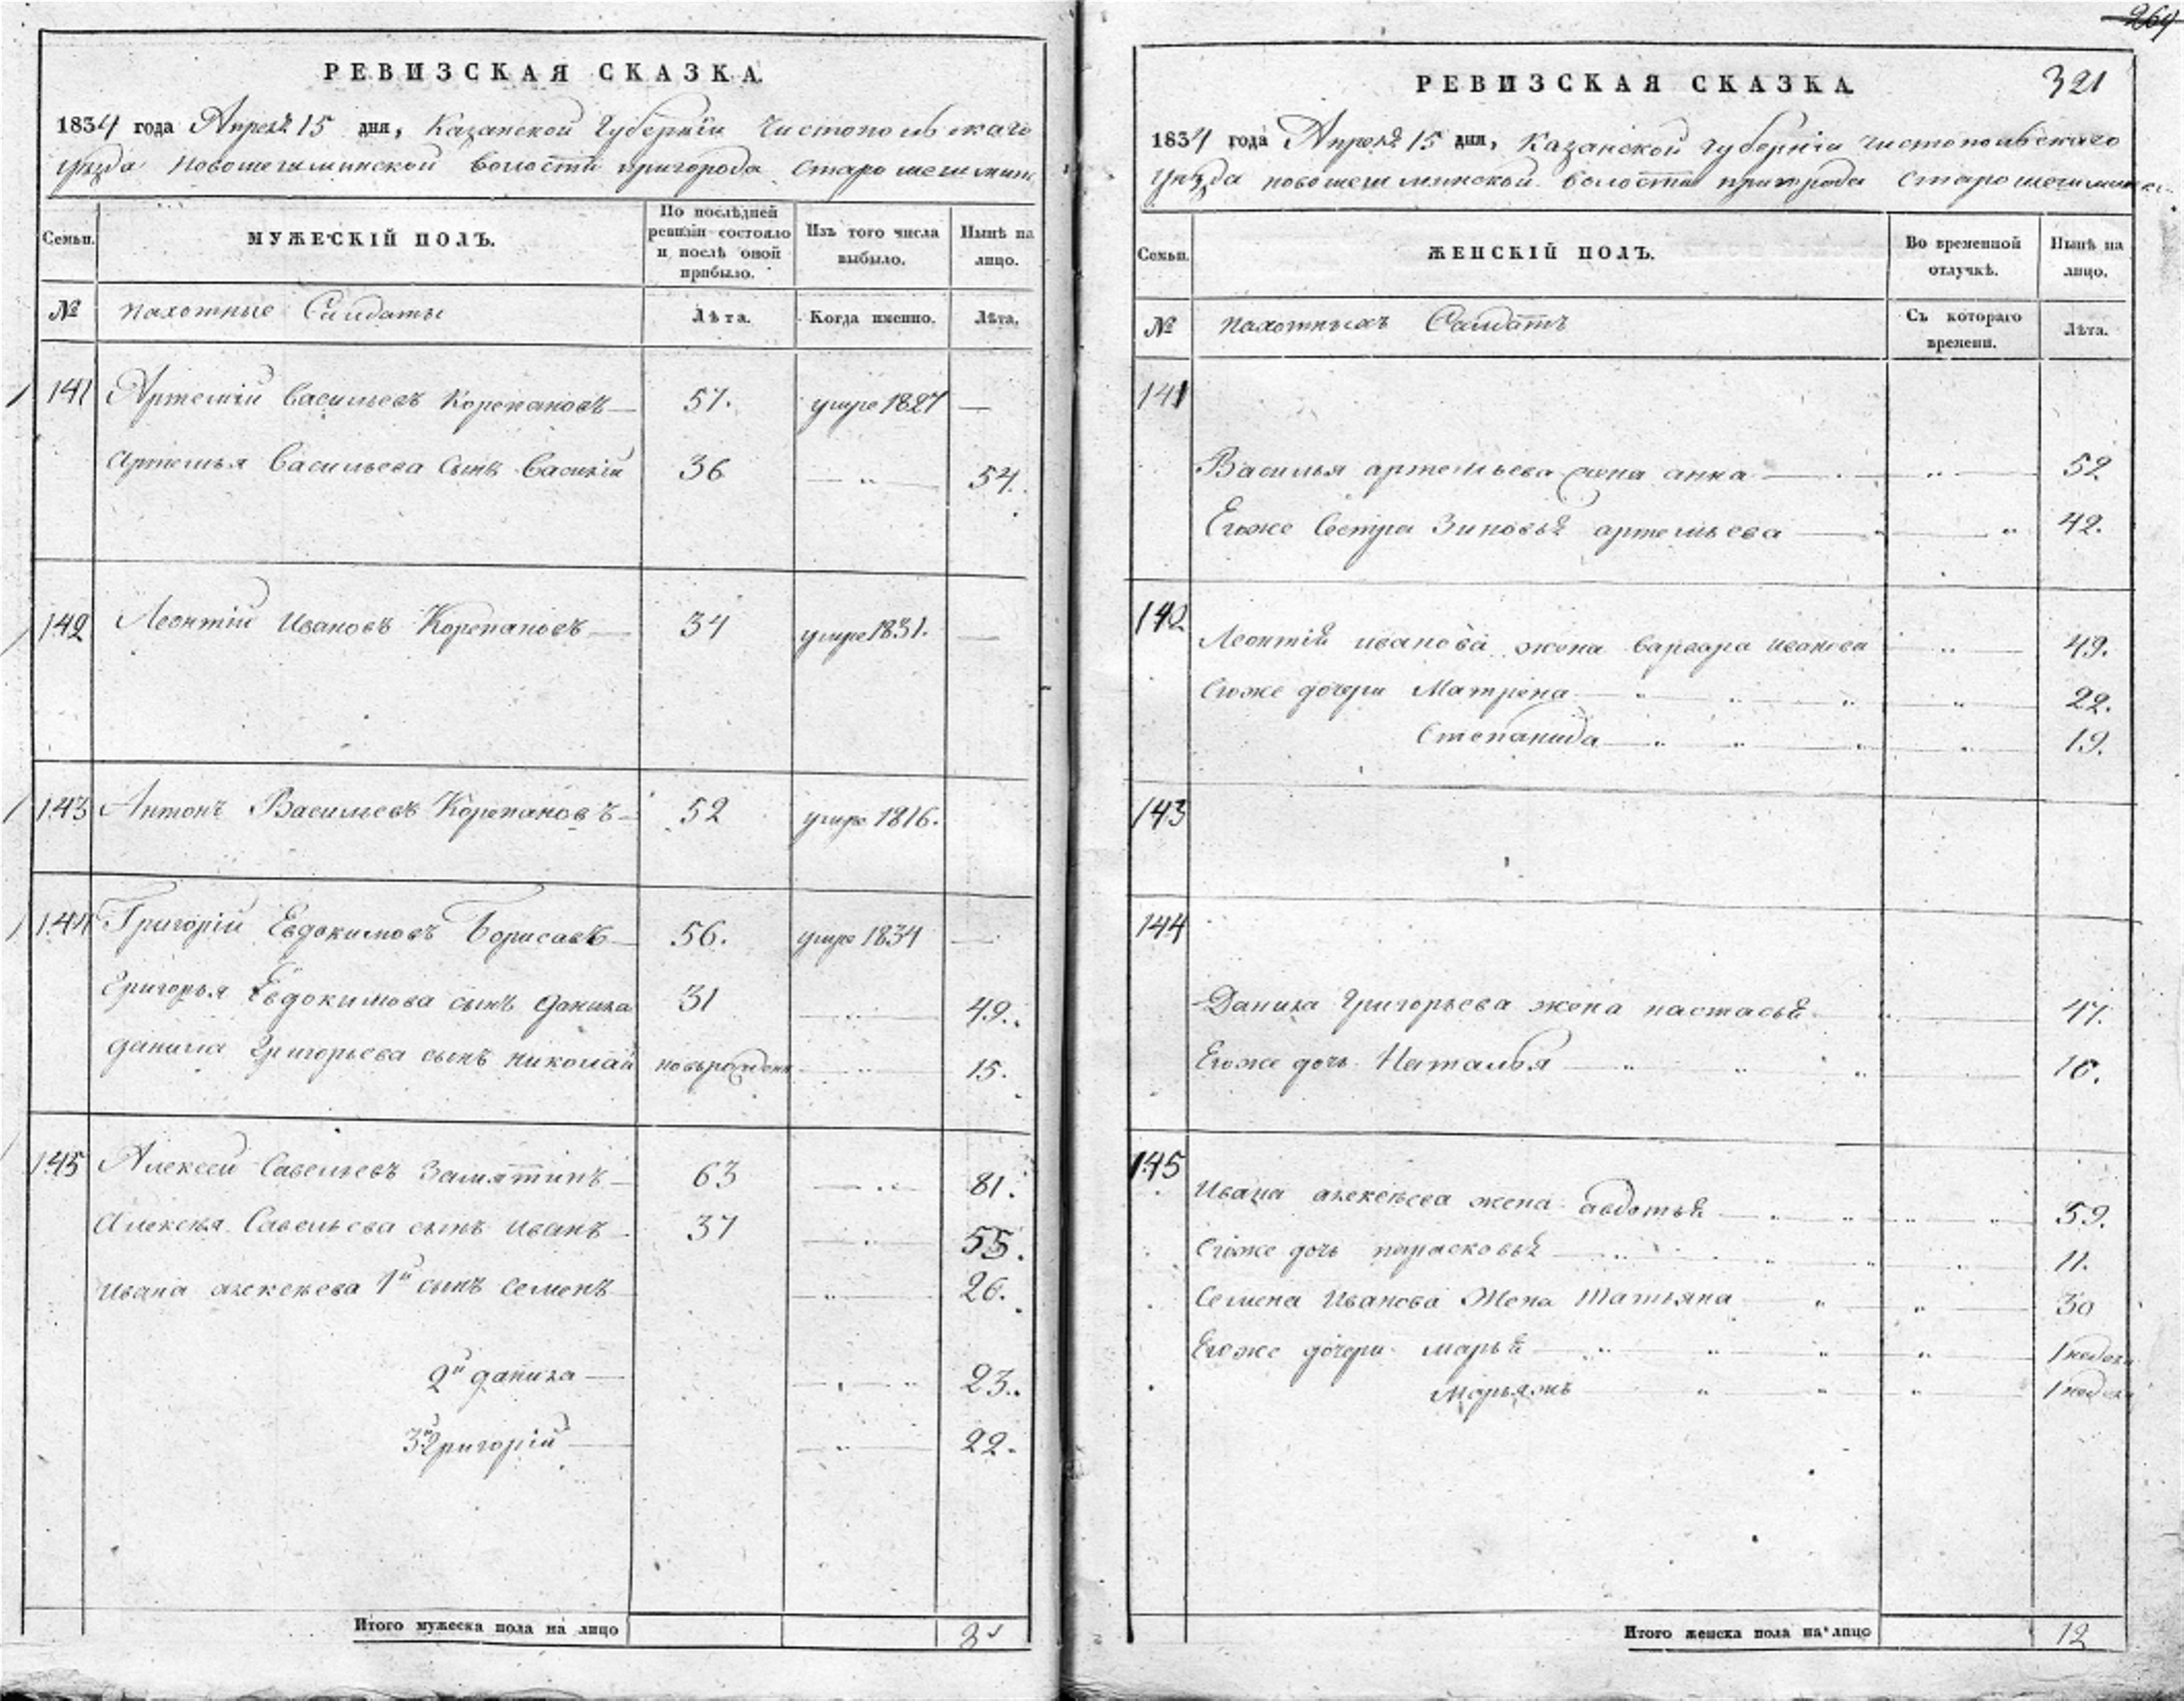 РЕВИЗСКАЯ СКАЗКА.
1834 года Апреля 15 дня, Казанской Губернiи Чистопольскаго
Уѣзда Новошешминской волости пригорода Старошешмин
Семьи.
МУЖЕСКIЙ ПОЛЪ.
По послѣдней ревизiи состояло и послѣ оной прибыло.
Изъ того числа выбыло.
Нынѣ на лицо.
№ пахотные Солдаты Лѣта. Когда именно. Лѣта.
141 Артемiй Васильевъ Корепановъ 57. умре 1827
Артемья Васильева Сынъ Василiй 36 54.
142 Леонтiй Ивановъ Корепановъ 34 умре 1831.
143 Антонъ Васильевъ Корепановъ 52 умре 1816.
144 Григорiй Евдокимовъ Борисовъ 56. умре 1834
Григорья Евдокимова сынъ Данила 31 49.
Данила Григорьева сынъ Николай новърожденъ 15.
145 Алексей Савельевъ Замятинъ 63 81.
Алексѣя Савельева сынъ Иванъ 37 55.
Ивана алексѣева 1й сынъ Семенъ 26.
2й данила 23.
3й Григорiй 22.
Итого мужеска пола на лицо 8
264
321
РЕВИЗСКАЯ СКАЗКА
1834 года Апреля 15 дня, Казанской Губернiи Чистопольскаго
Уѣзда новошешминской волости пригорода Старошешминс
Семьи.
ЖЕНСКIЙ ПОЛЪ.
Во временной отлучкѣ.
Нынѣ на лицо.
№ пахотныхъ Солдатъ Съ котораго времени. Лѣта.
141
Василья артемьева жена анна 52.
Егоже Сестра Зиновья артемьева 42.
142
Леонтiя иванова жена варвара иванова 49.
Егоже дочери Матрена 22.
Степанида 19.
143
144
Данила Григорьева жена настасья 47.
Егоже дочь Наталья 16.
145
Ивана алексѣева жена авдотья 59.
Егоже дочь парасковья 11.
Семена Иванова Жена Татьяна 30
Егоже дочери марья
Итого женска пола на лицо 12